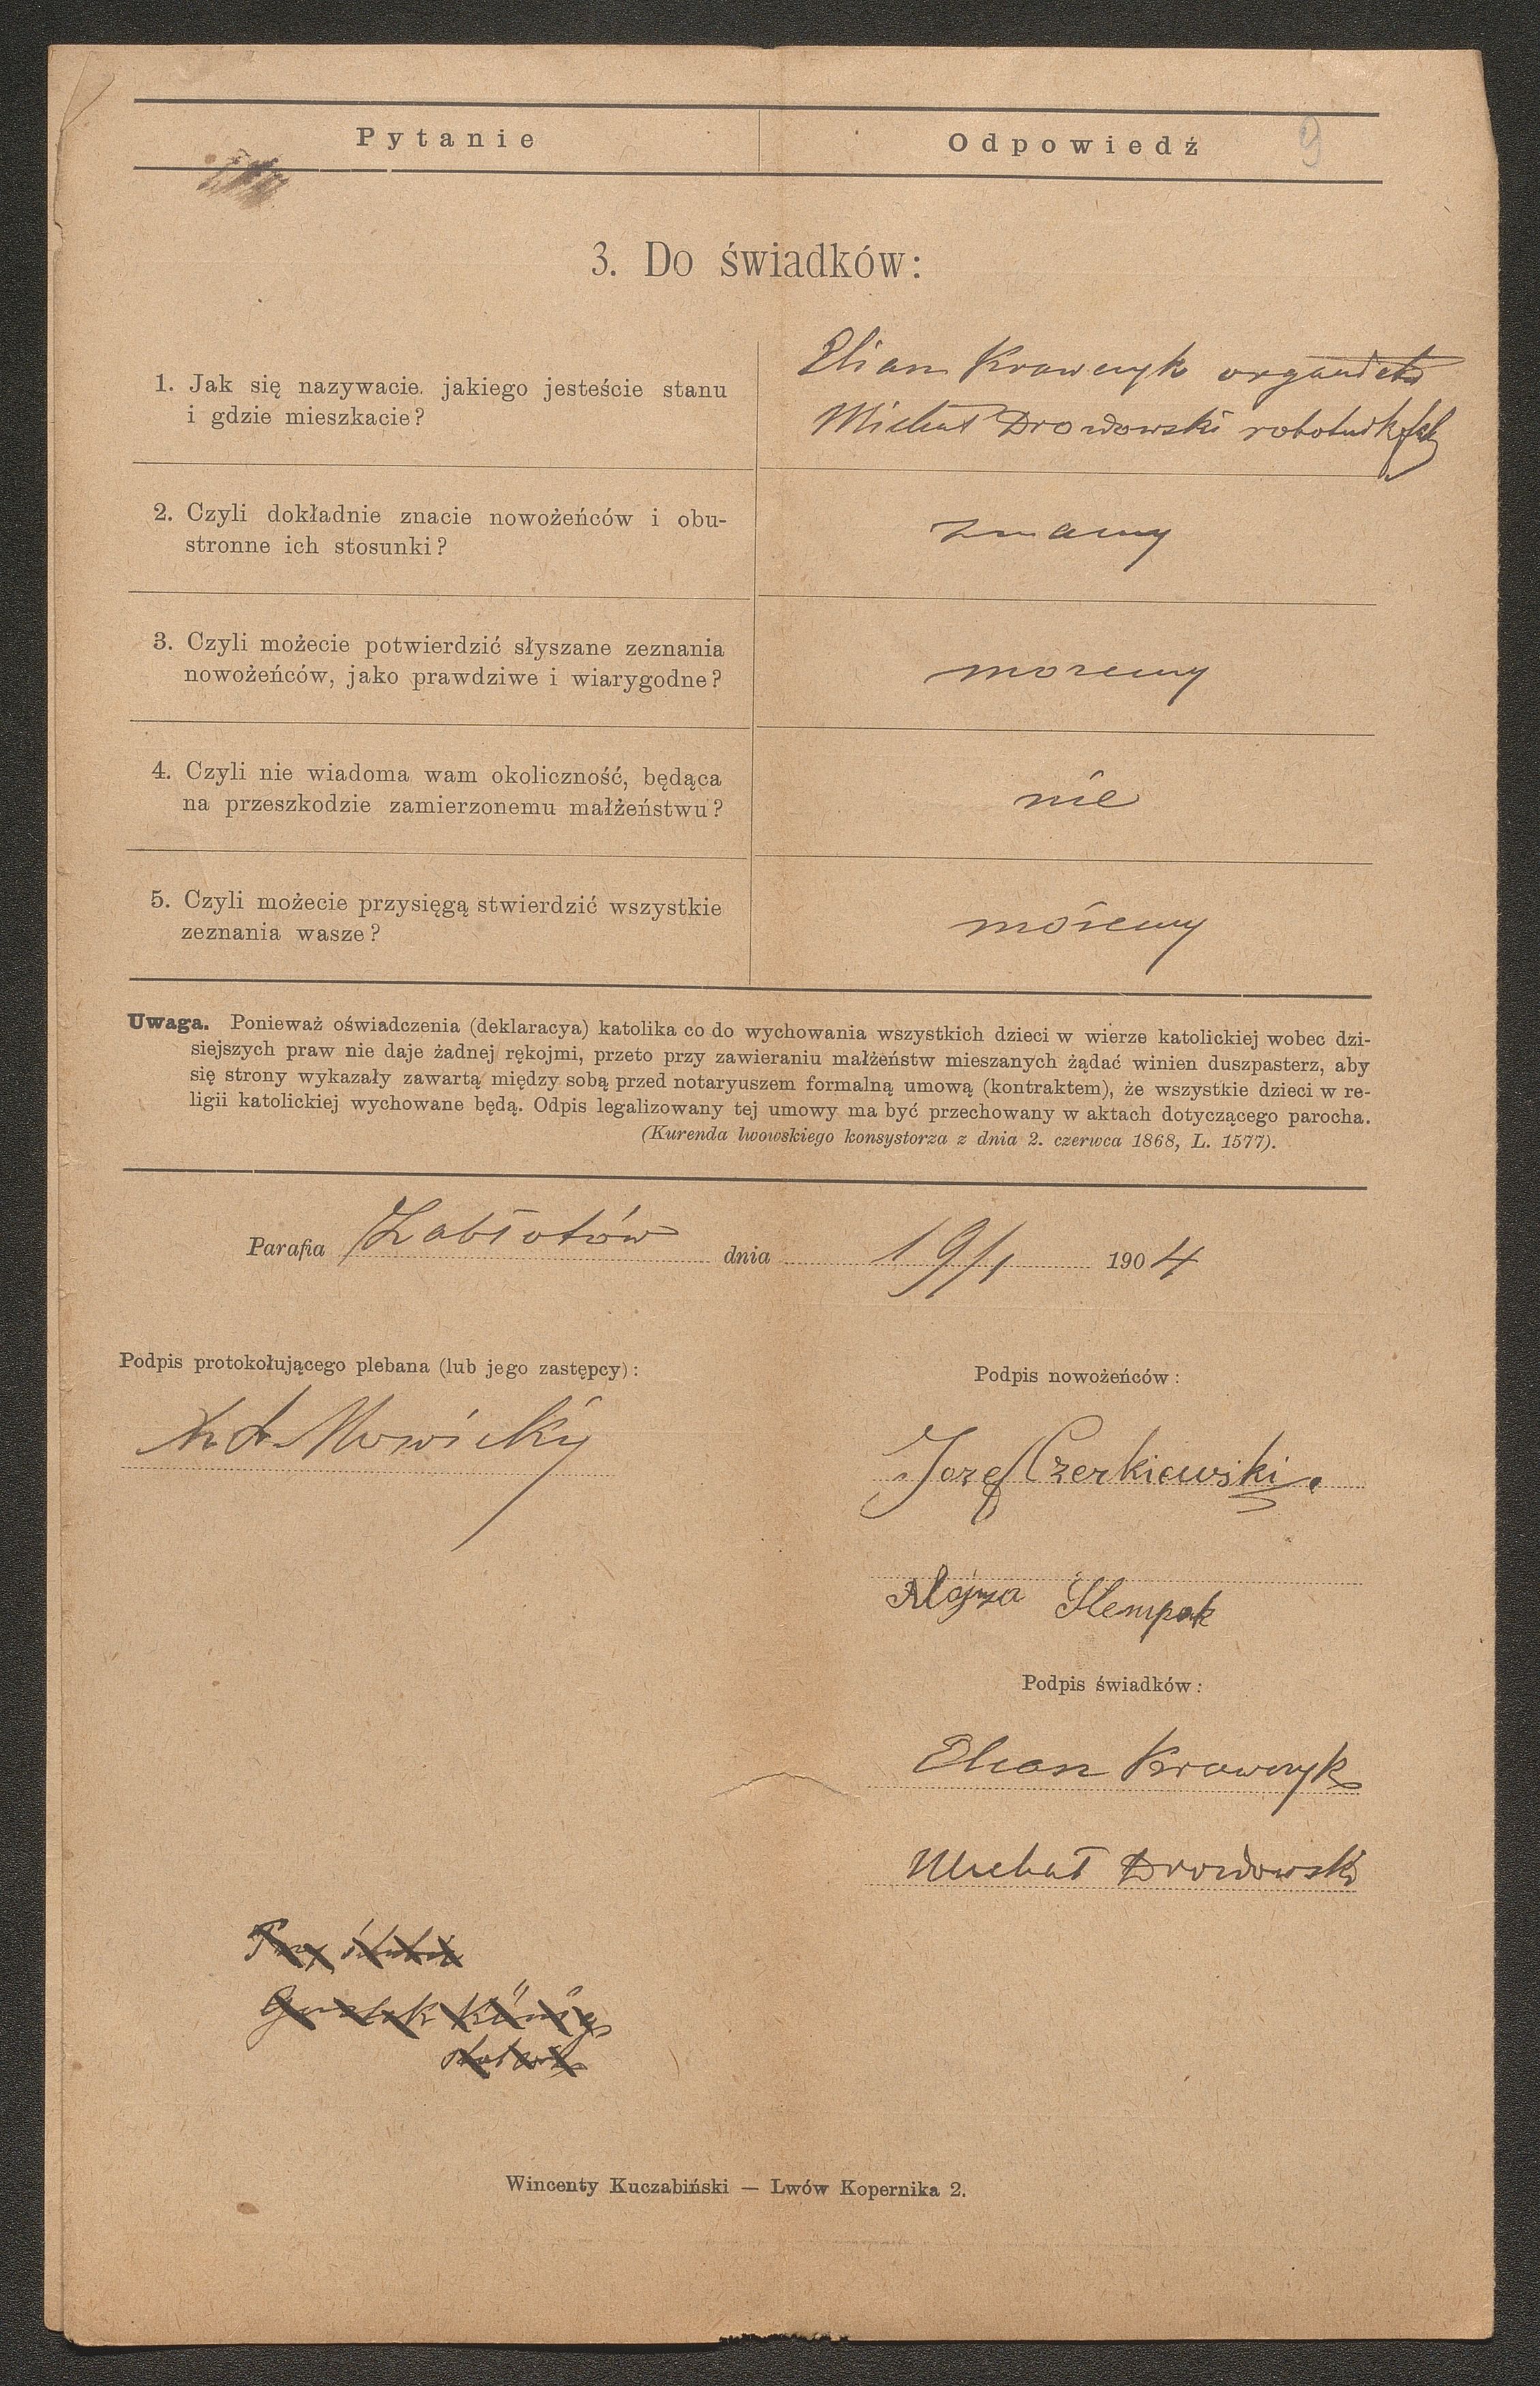 Pytanie Odpowiedź 9
3. Do świadków:
1. Jak się nazywacie. jakiego jesteście stanu
i gdzie mieszkacie?
Elian Krawczyk organista
Michał Drozdowski robotnik
2. Czyli dokładnie znacie nowożeńców i obu-
stronne ich stosunki?
znamy
3. Czyli możecie potwierdzić słyszane zeznania
nowożeńców, jako prawdziwe i wiarygodne?
mozemy
4. Czyli nie wiadoma wam okoliczność, będąca
na przeszkodzie zamierzonemu małżeństwu?
nie
5. Czyli możecie przysięgą stwierdzić wszystkie
zeznania wasze?
możemy
Uwaga. Ponieważ oświadczenia (deklaracya) katolika co do wychowania wszystkich dzieci w wierze katolickiej wobec dzi-
siejszych praw nie daje żadnej rękojmi, przeto przy zawieraniu małżeństw mieszanych żądać winien duszpasterz, aby
się strony wykazały zawartą między sobą przed notaryuszem formalną umową (kontraktem), że wszystkie dzieci w re-
ligii katolickiej wychowane będą. Odpis legalizowany tej umowy ma być przechowany w aktach dotyczącego parocha.
(Kurenda lwowskiego konsystorza z dnia 2. czerwca 1868, L. 1577).
Parafia Zabłotów dnia 19/1 1904
Podpis protokołującego plebana (lub jego zastępcy):
Podpis nowożeńców:
Jozef Czerkiewski.
Alojza Ślempak
Podpis świadków:
Elian Krawczyk
Michał Drozdowski
König
Wincenty Kuczabiński — Lwów Kopernika 2.